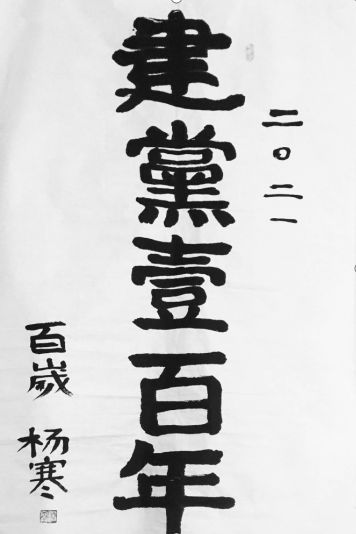 二〇二一
建黨壹百年
百歲
杨寒